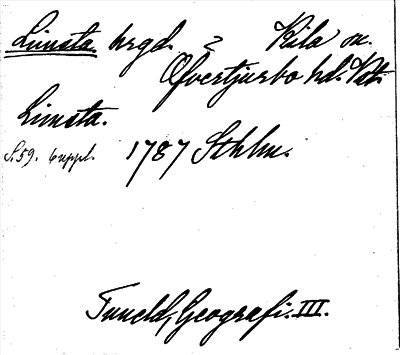 Limsta hrgd. Kila sn.
Öfvertjurbo hd. Vstm.
Limsta.
S. 59. 6 uppl. 1787 Sthlm.
Tuneld, Geografi. III.